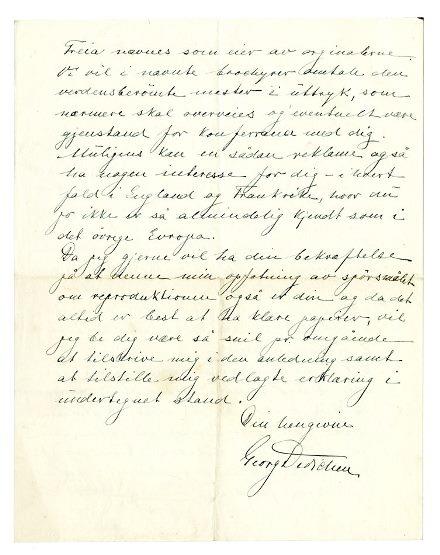 Freia nævnes som eier av orginalerne.
Vi vil i nævnte brochyrer omtale den
verdensberömte mester i uttryk, som
nærmere skal overveies og eventuelt være
gjenstand for konferranse med dig.
Muligens kan en sådan reklame også
ha nogen interesse for dig – i hvert
fald i England og Frankrike, hvor du
jo ikke er så almindelig kjendt som i
det övrige Evropa.
Da jeg gjerne vil ha din bekræftelse
på at denne min opfatning av spörsmålet
om reproduktionen også er din og da det
altid er best at ha klare papirer, vil
jeg be dig være så snil pr. omgående
at tilskrive mig i den anledning samt
at tilstille mig vedlagte erklæring i
undertegnet stand.
Din hengivne
Georg